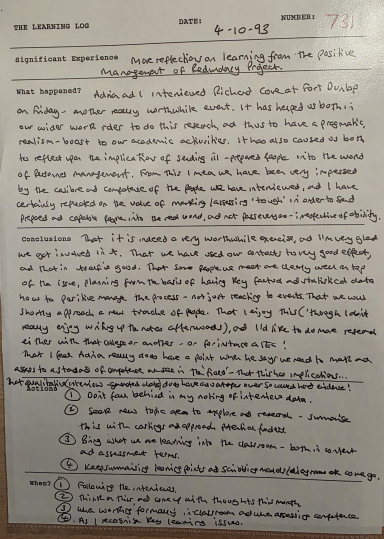 THE LEARNING LOG DATE: 4-10-93 NUMBER: 731
Significant Experience More reflections on learning from the positive
Management of Redundancy Project.
What happened? Adrian and I interviewed Richard Cove at Fort Dunlop
on Friday - another really worthwhile event. It has helped us both in
our wider work roles to do this research, and thus to have a pragmatic,
realism-boost to our academic activities. It has also caused us both
to reflect upon the implications of sending ill-prepared people into the world
of Personnel management. From this I mean we have been very impressed
by the calibre and competence of the people we have interviewed, and I have
certainly reflected on the value of marking/assessing 'tough' in order to send
prepared and capable people into the real world, and not passengers - irrespective of ability.
Conclusions That it is indeed a very worthwhile exercise, and I'm very glad
we got involved in it. That we have used our contacts to very good effect,
and that in itself is good. That some people we meet are clearly well on top
of the issue, planning from the basis of having key factual and statistical data
how to positively manage the process - not just reacting to events. That we will
shortly approach a new tranche of people. That I enjoy this ('though I don't
really enjoy writing up the notes afterwards), and I'd like to do more research
either with that college or another - or for instance a TEC!
That I feel Adrian really does have a point when he says we need to match and
assess to a standard of competence as seen in 'the field' - that this has implications...
That qualitative interview-generated data does have an edge over so called hard evidence!
Actions
① Don't fall behind in my noting of interview data.
② Seek new topic area to explore and research - summarise
this with costings and approach potential funders.
③ Bring what we are learning into the classroom - both in content
and assessment terms.
④ Keep summarising learning points and scribbling models/diagrams etc as we go.
When? ① Following the interviews.
② Think on this and come up with thoughts this month
③ When working formally in classroom and when assessing competence
④ As I recognise key learning issues.